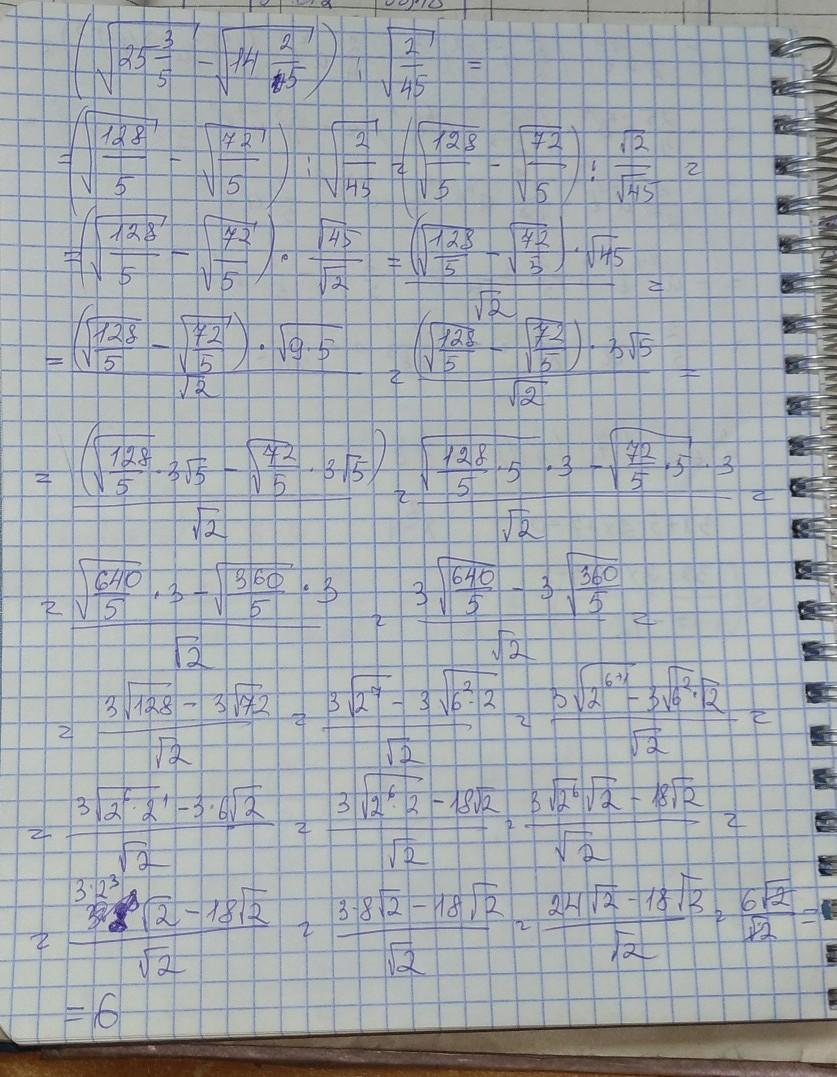 (√(25 3/5) − √(14 2/45)) : √(2/45) =
= (√(128/5) − √(72/5)) : √(2/45) = (√(128/5) − √(72/5)) : √2/√45 =
= (√(128/5) − √(72/5)) · √45/√2 = ((√(128/5) − √(72/5)) · √45)/√2 =
= ((√(128/5) − √(72/5)) · √(9·5))/√2 = ((√(128/5) − √(72/5)) · 3√5)/√2 =
= (√(128/5) · 3√5 − √(72/5) · 3√5)/√2 = (√(128/5 · 5) · 3 − √(72/5 · 5) · 3)/√2 =
= (√(640/5) · 3 − √(360/5) · 3)/√2 = (3√(640/5) − 3√(360/5))/√2 =
= (3√128 − 3√72)/√2 = (3√(2⁷) − 3√(6²·2))/√2 = (3√(2⁶⁺¹) − 3√(6²)·√2)/√2 =
= (3√(2⁶·2¹) − 3·6√2)/√2 = (3√(2⁶·2) − 18√2)/√2 = (3√(2⁶)√2 − 18√2)/√2 =
= (3·2³√2 − 18√2)/√2 = (3·8√2 − 18√2)/√2 = (24√2 − 18√2)/√2 = 6√2/√2 =
= 6